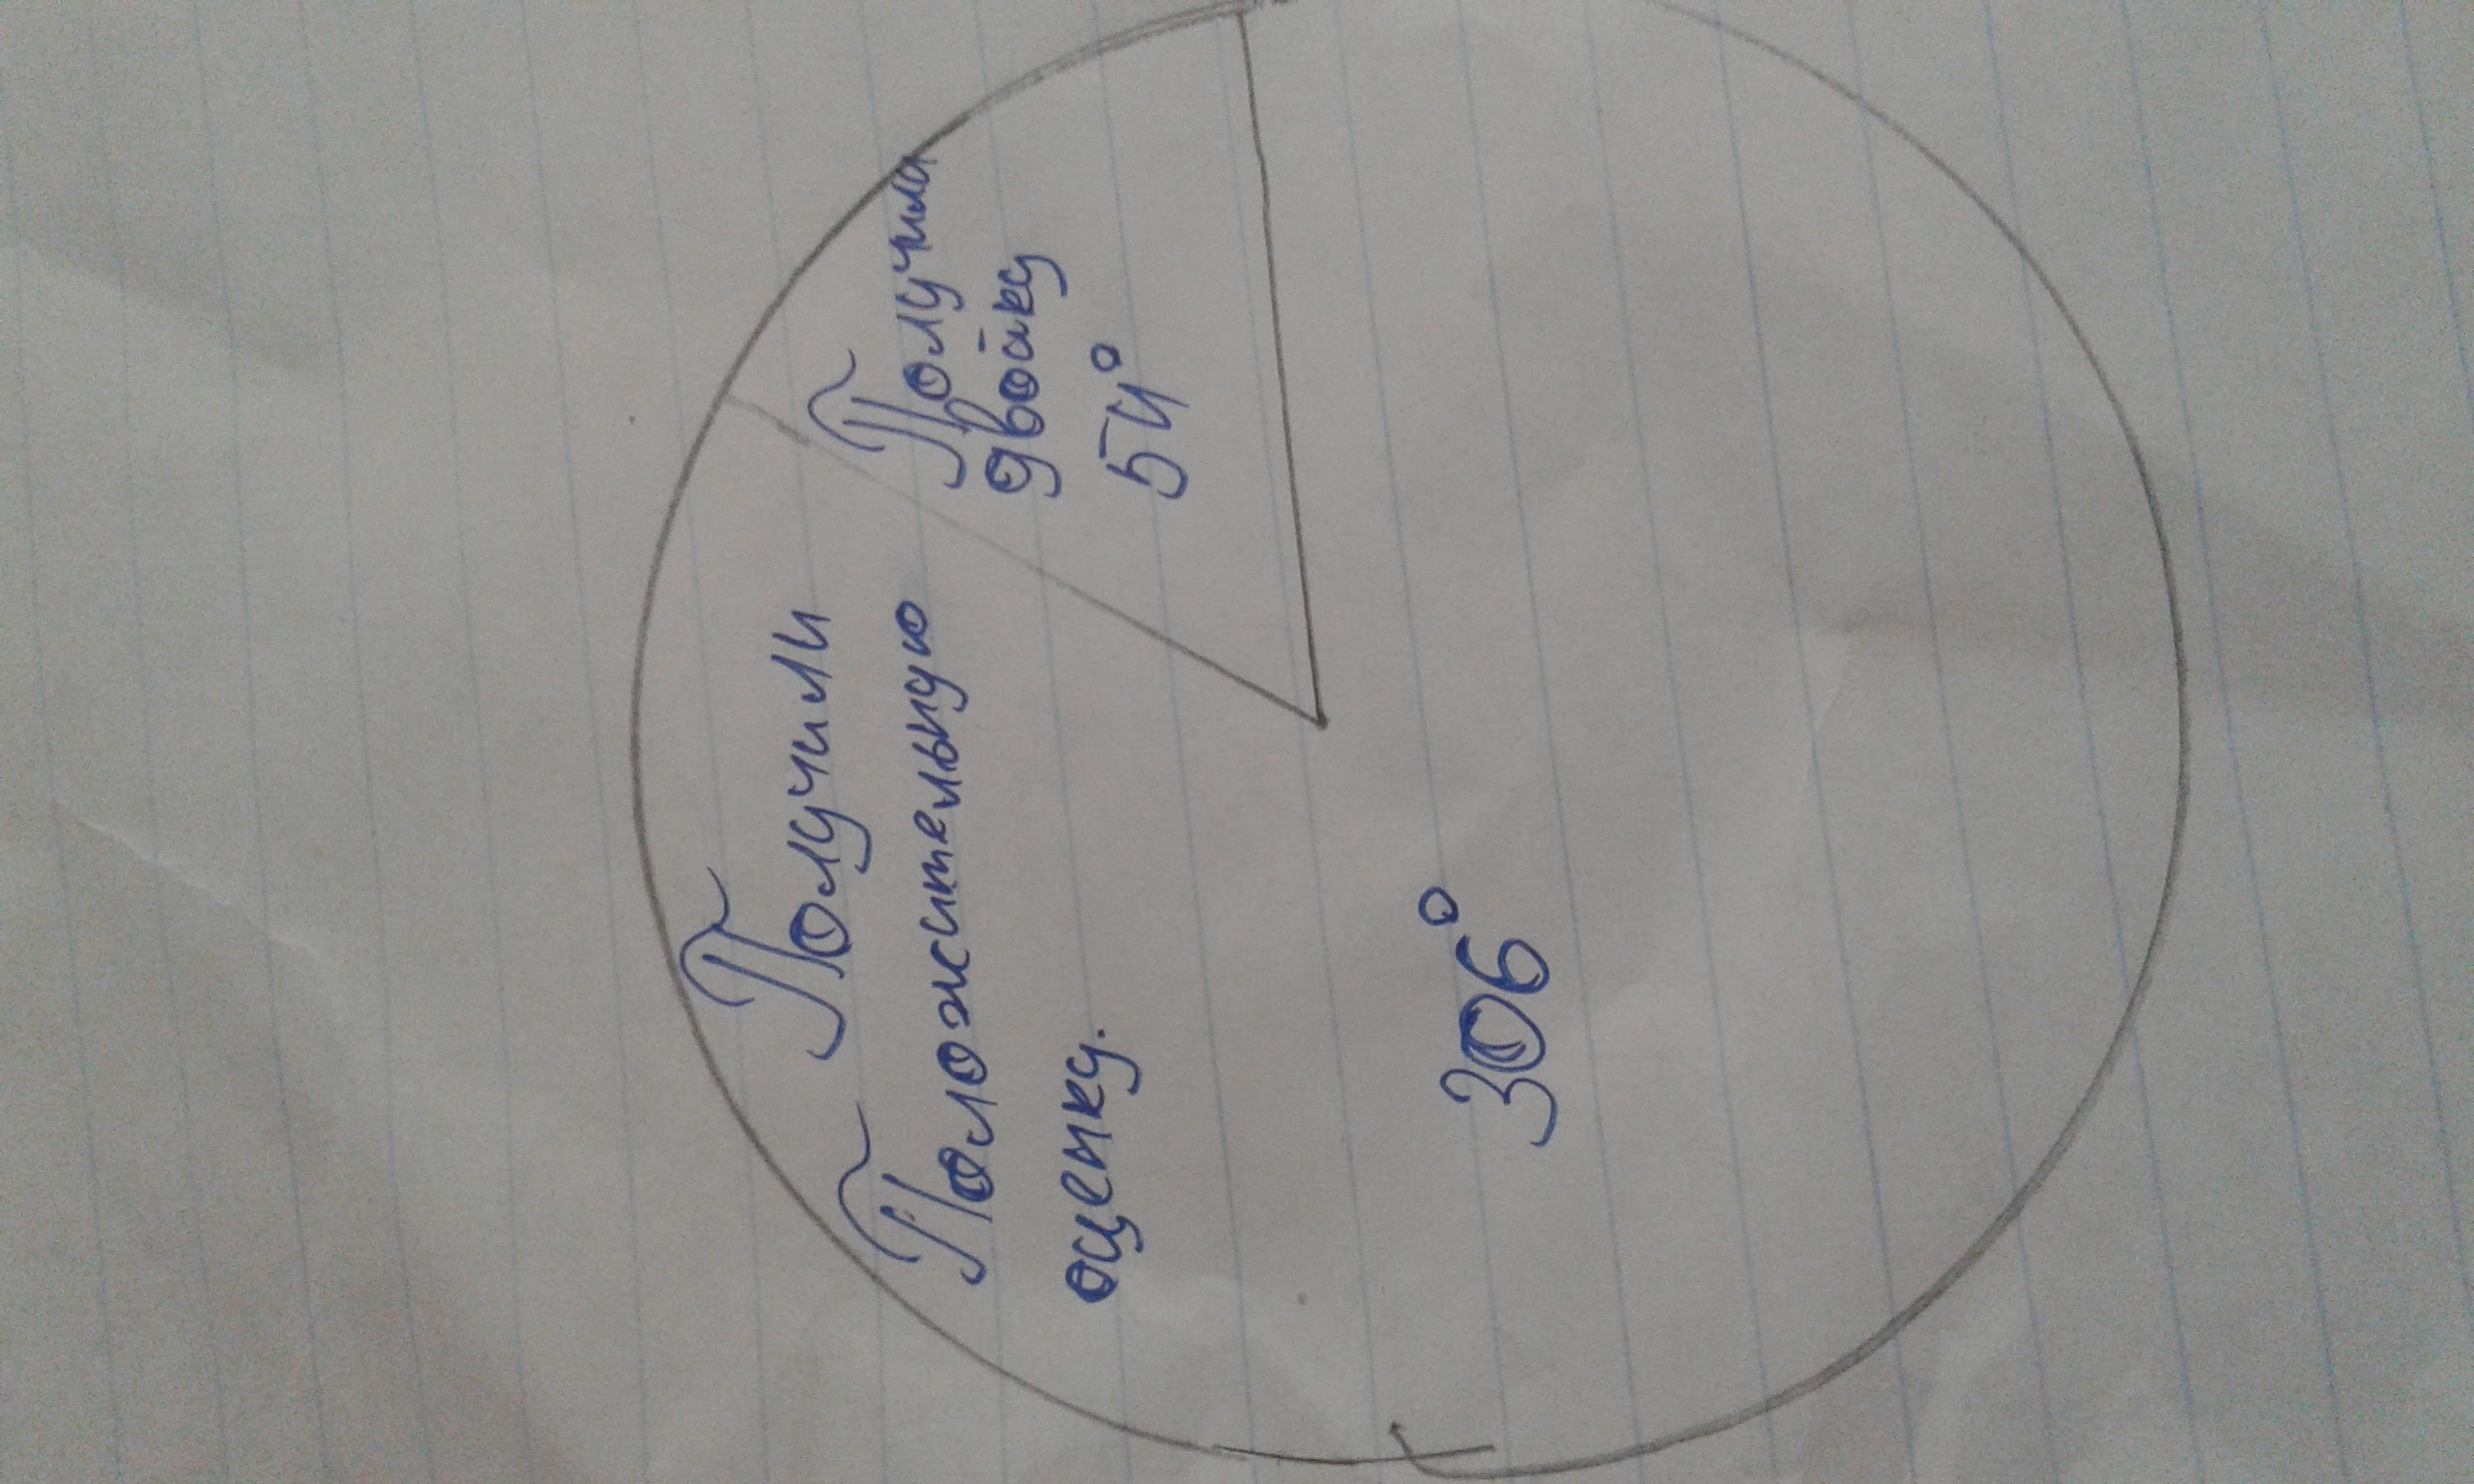 Получили
Положительную
оценку.
306°
Получила
двойку
54°